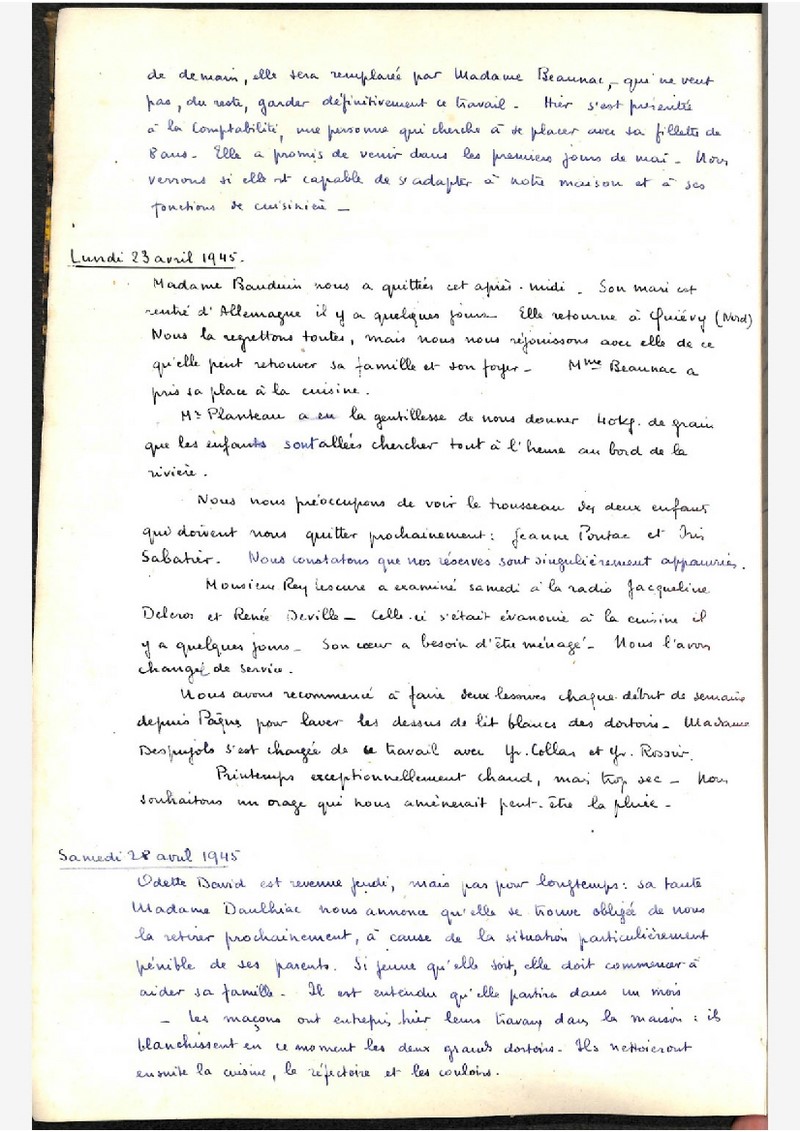 de demain, elle sera remplacée par Madame Beaunac, qui ne veut
pas, du reste, garder définitivement ce travail - Hier s'est présentée
à la Comptabilité, une personne qui cherche à se placer avec sa fillette de
8 ans - Elle a promis de venir dans les premiers jours de mai - Nous
verrons si elle est capable de s'adapter à notre maison et à ses
fonctions de cuisinière -
Lundi 23 avril 1945.
Madame Bauduin nous a quittées cet après-midi - Son mari est
rentré d'Allemagne il y a quelques jours - Elle retourne à Quiévy (Nord)
Nous la regrettons toutes, mais nous nous réjouissons avec elle de ce
qu'elle peut retrouver sa famille et son foyer - Mme Beaunac a
pris sa place à la cuisine.
Mr Planteau a eu la gentillesse de nous donner 40kg. de grain
que les enfants sont allées chercher tout à l'heure au bord de la
rivière.
Nous nous préoccupons de voir le trousseau des deux enfants
qui doivent nous quitter prochainement : Jeanne Pontac et Iris
Sabatier. Nous constatons que nos réserves sont singulièrement appauvries.
Monsieur Rey Lescure a examiné samedi à la radio Jacqueline
Delcros et Renée Deville - Celle-ci s'était évanouie à la cuisine il
y a quelques jours - Son cœur a besoin d'être ménagé - Nous l'avons
changée de service.
Nous avons recommencé à faire deux lessives chaque début de semaine
depuis Pâques pour laver les dessus de lit blancs des dortoirs - Madame
Despujols s'est chargée de ce travail avec Yv. Collas et Yv. Rossir.
Printemps exceptionnellement chaud, mais trop sec - Nous
souhaitons un orage qui nous amènerait peut-être la pluie -
Samedi 28 avril 1945
Odette David est revenue jeudi, mais pas pour longtemps : sa tante
Madame Daulhiac nous annonce qu'elle se trouve obligée de nous
la retirer prochainement, à cause de la situation particulièrement
pénible de ses parents. Si jeune qu'elle soit, elle doit commencer à
aider sa famille - Il est entendu qu'elle partira dans un mois
- Les maçons ont entrepris hier leurs travaux dans la maison : ils
blanchissent en ce moment les deux grands dortoirs - Ils nettoieront
ensuite la cuisine, le réfectoire et les couloirs.